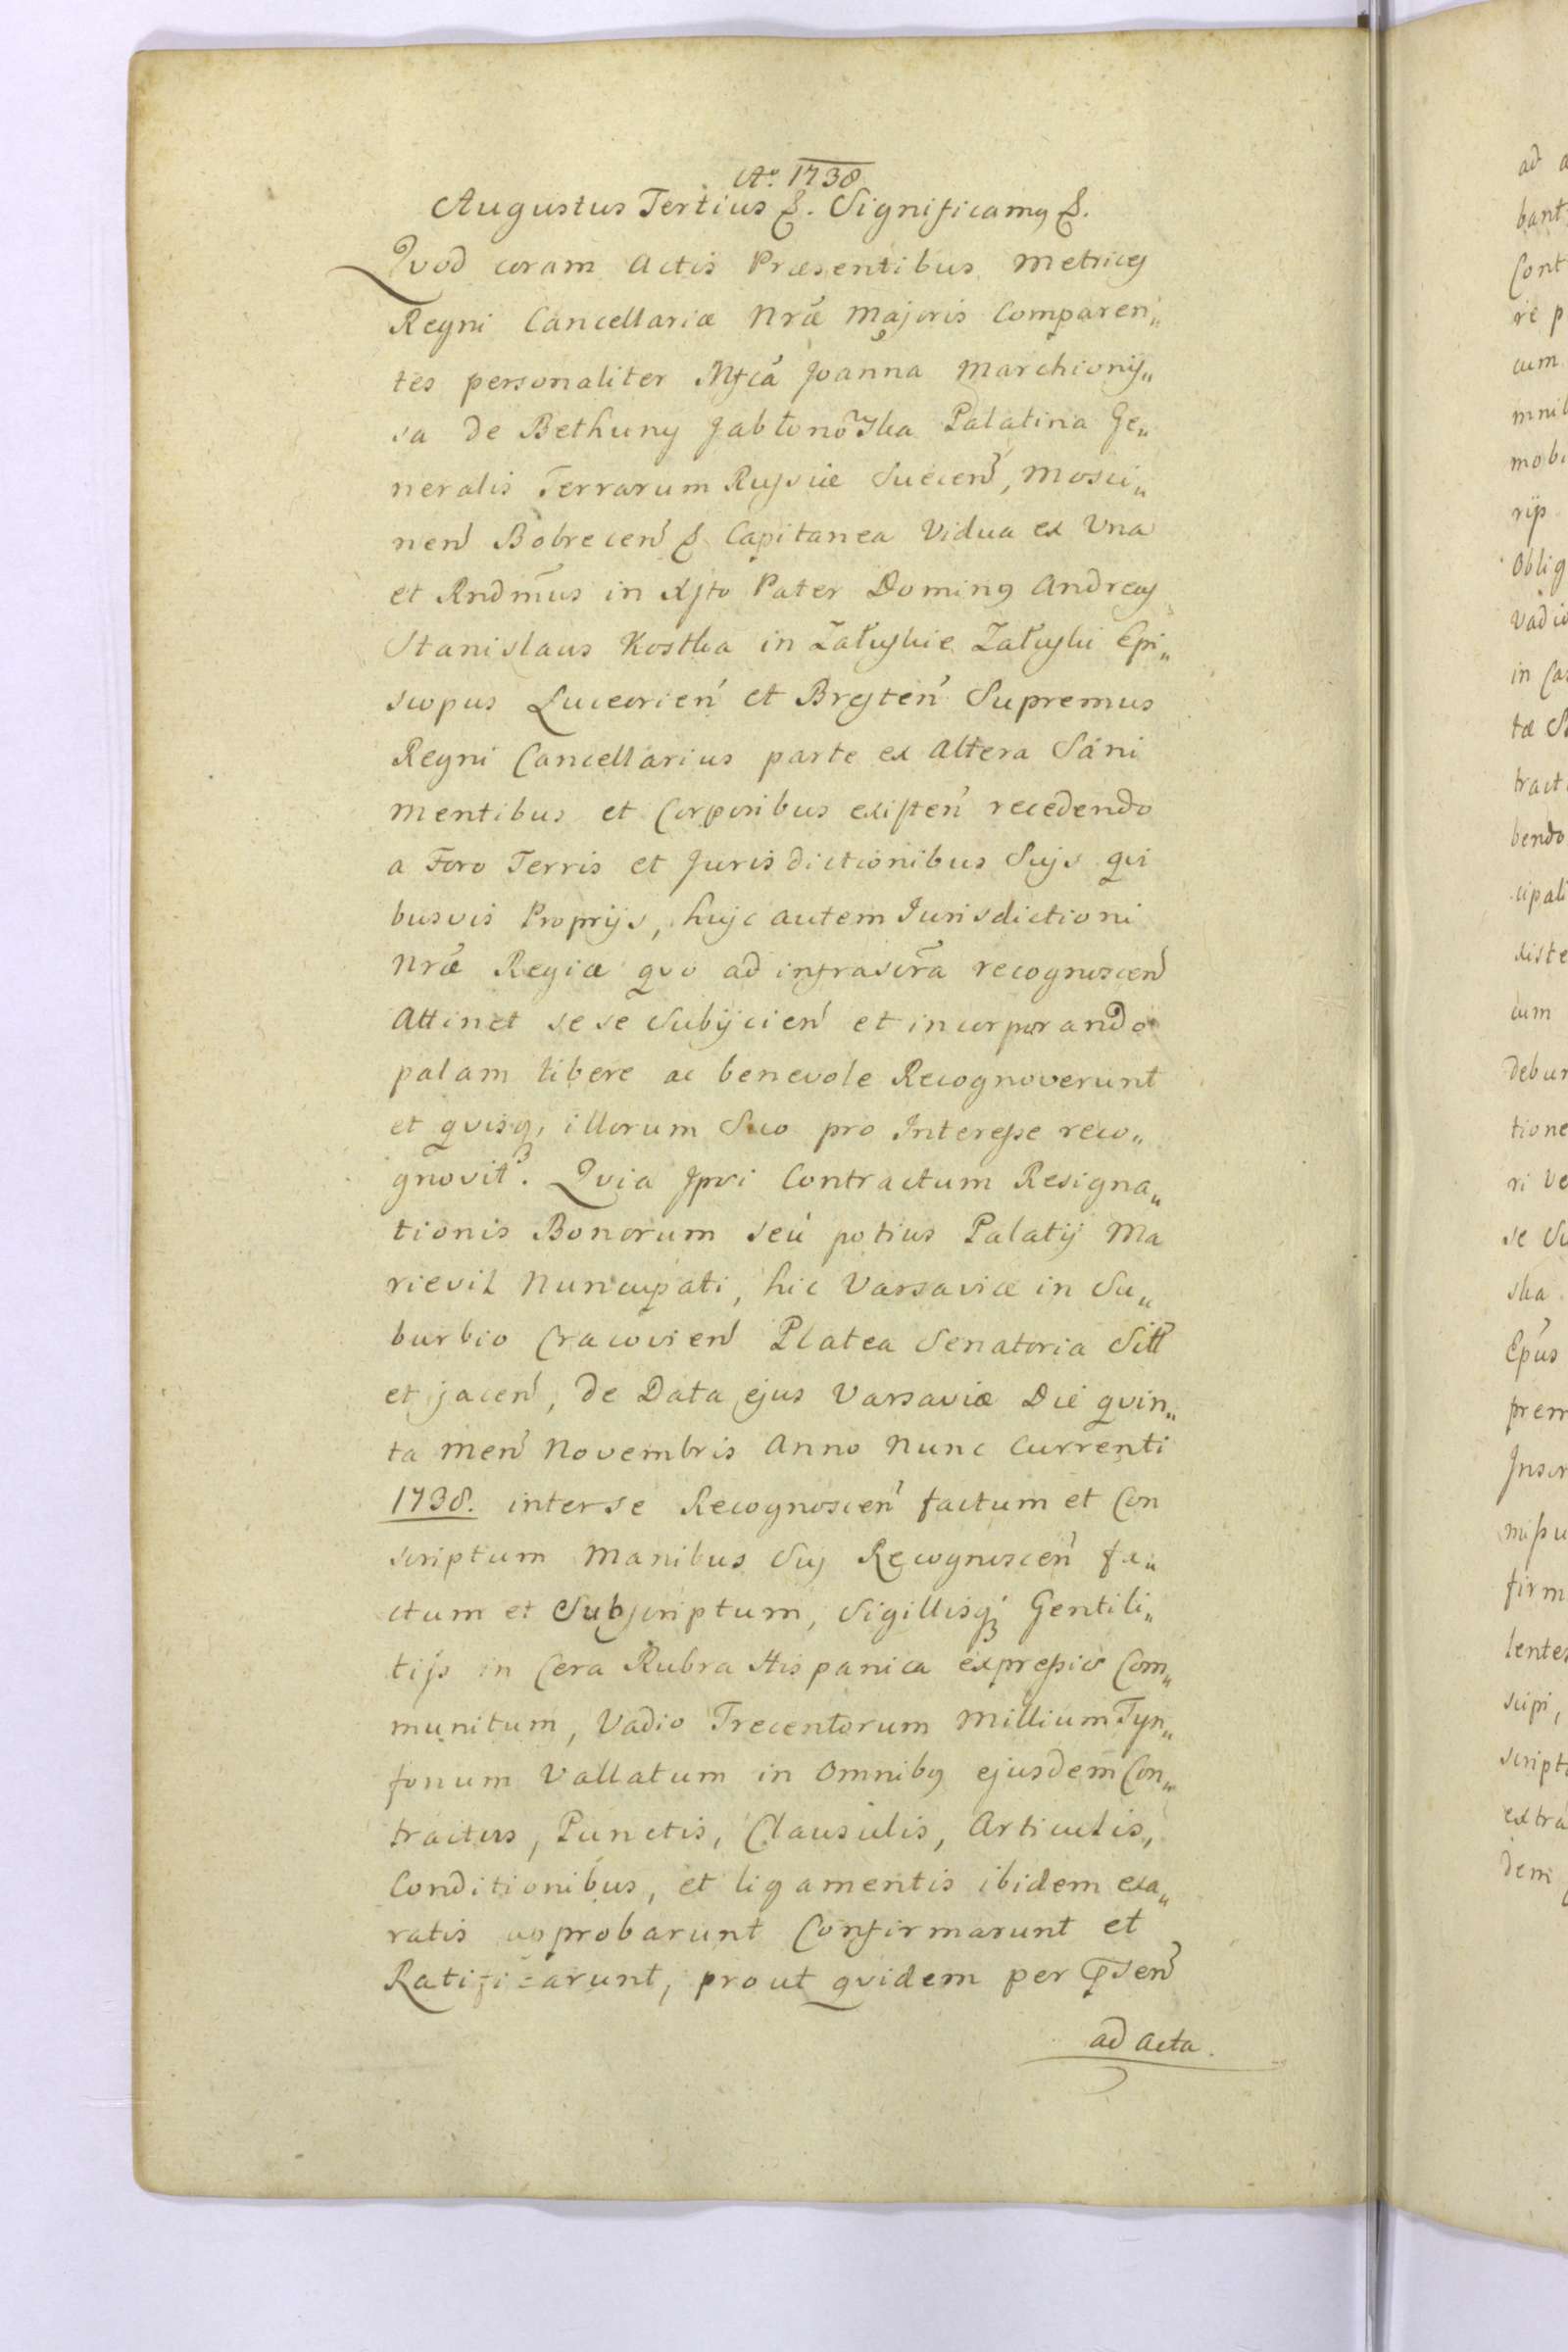 Aᵒ. 1738
Augustus Tertius &. Significamꝰ &.
Qvod coram Actis Præsentibus Metrices
Regni Cancellariæ Nræ Majoris Comparen„
tes personaliter Mfca Joanna Marchionis„
sa de Bethuny Jabłonowska Palatina Ge„
neralis Terrarum Russiæ Suecen, Mosci„
nen Bobrecen & Capitanea Vidua ex Una
et Rndmus in Xsto Pater Dominꝰ Andreas
Stanislaus Kostka in Załuskie Załuski Epi„
scopus Luceorien et Bresten Supremus
Regni Cancellarius parte ex Altera Sani
mentibus et Corporibus existen recedendo
a Foro Terris et Jurisdictionibus Suis qvi
busvis Proprijs, huic autem Jurisdictioni
Nræ Regiæ qvo ad infrascra recognoscen
Attinet se se Subijcien et incorporando
palam libere ac benevole Recognoverunt
et qvisq, illorum Suo pro Interesse reco„
gnovit. Qvia Ipsi Contractum Resigna„
tionis Bonorum seu potius Palatij Ma
rievil Nuncupati, hic Varsaviæ in Su„
burbio Cracovien Platea Senatoria Sitt
et jacen, de Data ejus Varsaviæ Die qvin„
ta Men Novembris Anno Nunc Currenti
1738. inter se Recognoscen factum et Con
scriptum Manibus Suis Recognoscen fa„
ctum et Subscriptum, Sigillisq; Gentili„
tijs in Cera Rubra Hispanica expressis Com„
munitum, Vadio Trecentorum Millium Tyn„
fonum Vallatum in Omnibꝰ ejusdem Con„
tractus, Punctis, Clausulis, Articulis,
Conditionibus, et ligamentis ibidem exa„
ratis approbarunt Confirmarunt et
Ratificarunt, prout qvidem per Psen
ad Acta.
ad
bant
Cont
re p
cum
mnib
mobi
Oblig
Vadio
in Ca
tæ S
tract
bendo
cipali
xiste
cum
debun
tione
ri ve
se Su
ska
Epus
prem
Inscr
missu
firm
lentes
scipi,
script
extra
dem